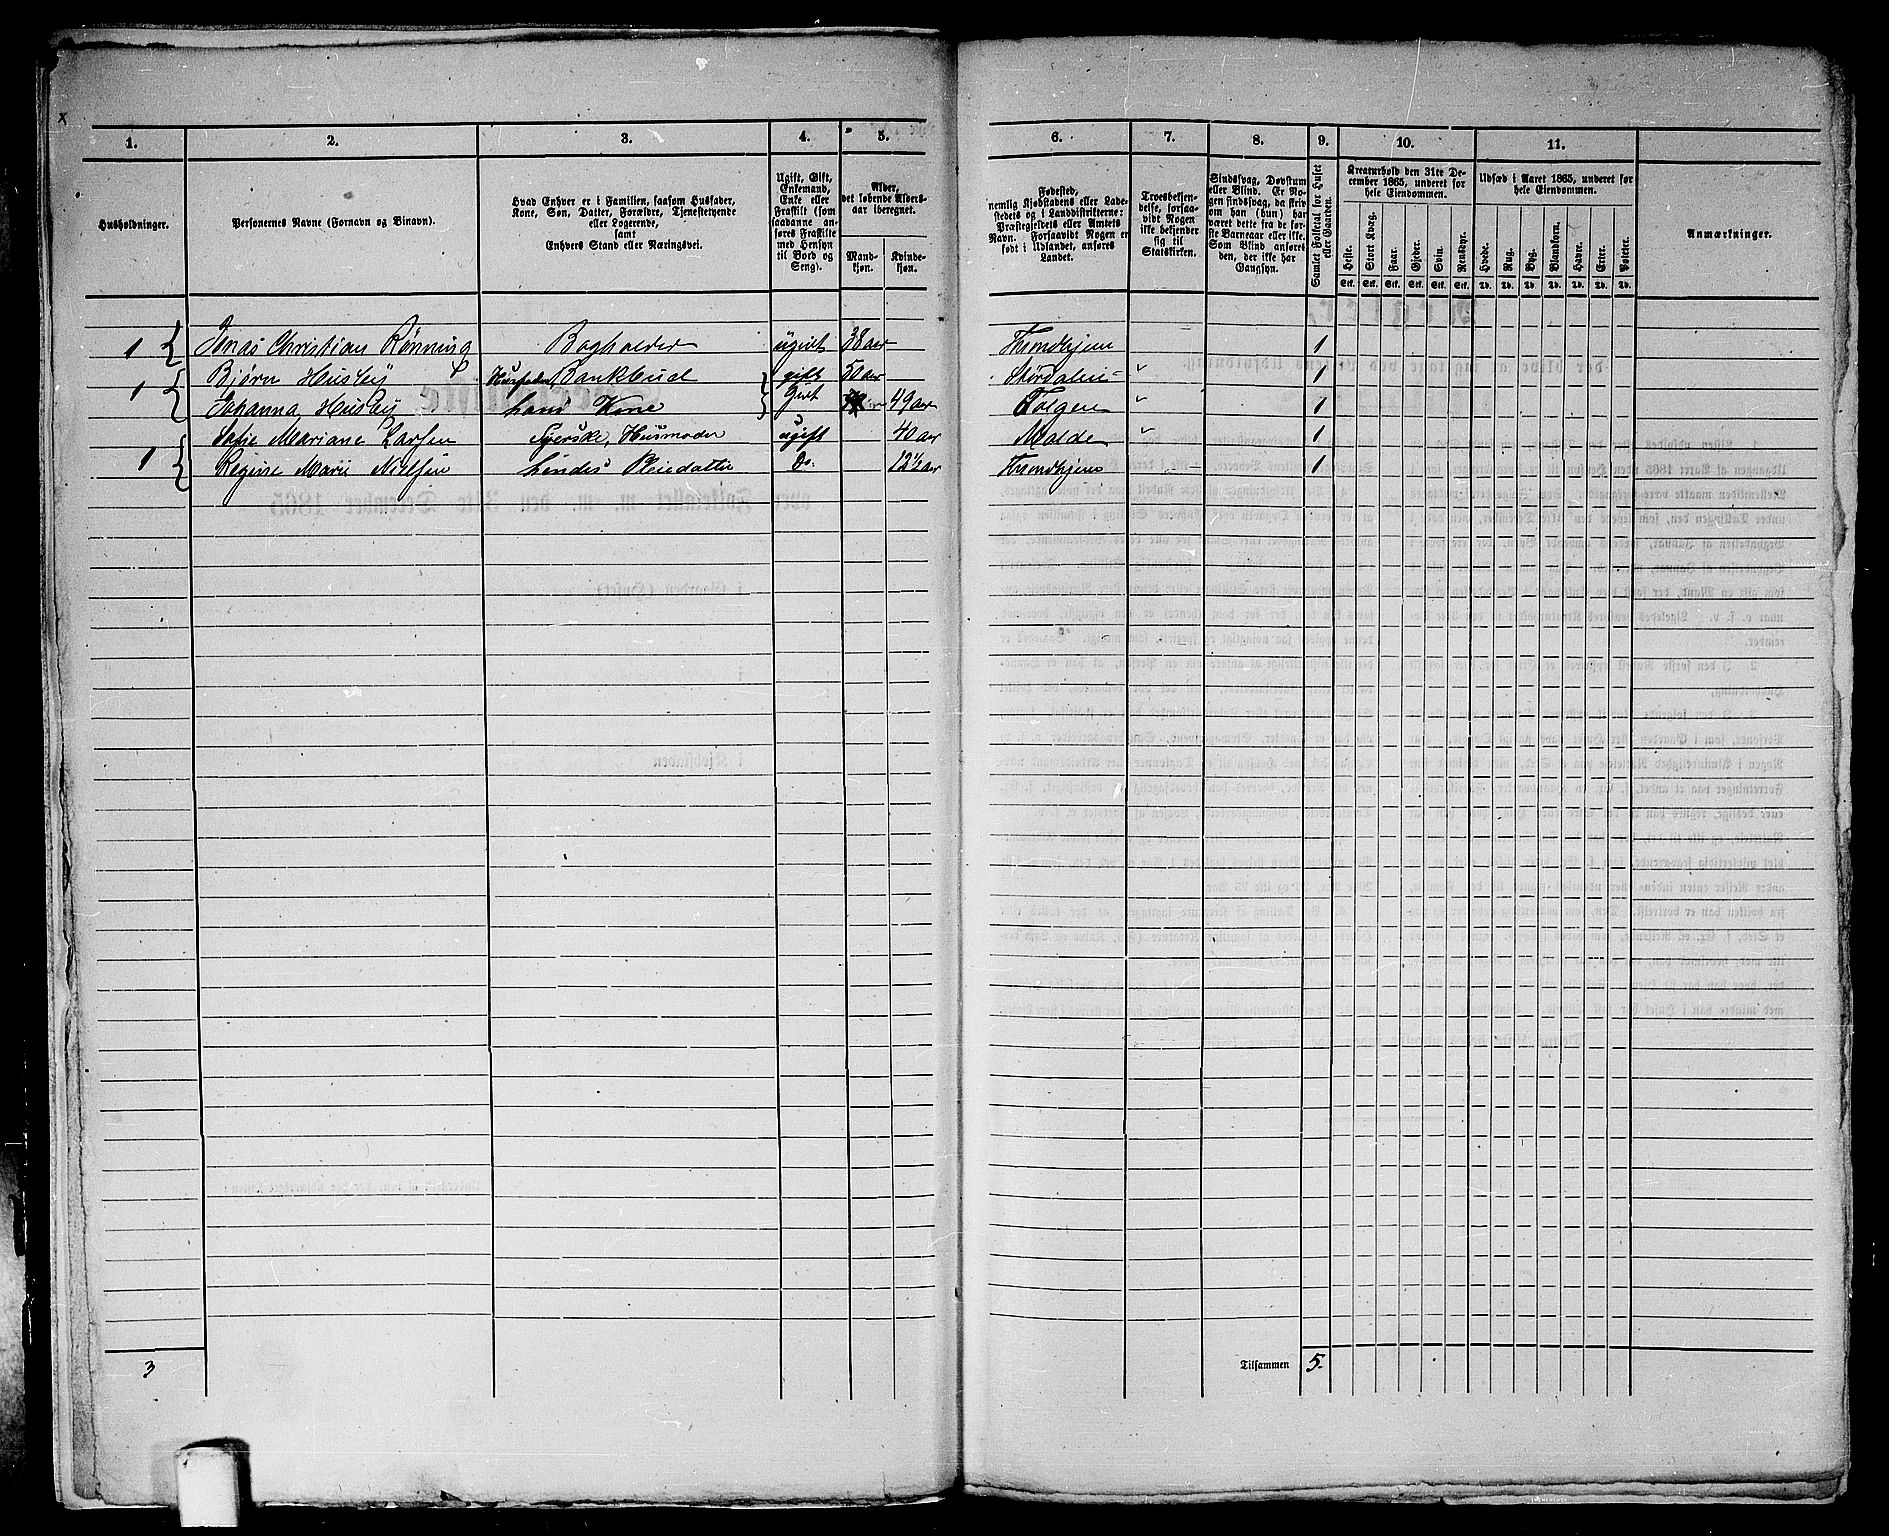 x
1. 2. 3. 4. 5. 6. 7. 8. 9. 10. 11.
Husholdninger.
Personernes Navne (Fornavn og Binavn).
Hvad Enhver er i Familien, saasom Husfader,
Kone, Søn, Datter, Forældre, Tjenestetyende
eller Logerende,
samt
Enhvers Stand eller Næringsvei.
Ugift, Gift,
Enkemand,
Enke eller
Fraskilt (som
saadanne an-
føres Fraskilte
med Hensyn
til Bord og
Seng).
Alder,
det løbende Alders-
aar iberegnet.
Mand-
kjøn.
Kvinde-
kjøn.
Fødested,
nemlig Kjøbstadens eller Lade-
stedets og i Landdistrikterne:
Præstegjeldets eller Amtets
Navn. Forsaavidt Nogen er
født i Udlandet, anføres
Landet.
Troesbekjen-
delse, forsaa-
vidt Nogen
ikke bekjender
sig til
Statskirken.
Sindssvag, Døvstum
eller Blind. Er No-
gen sindssvag, da skriv
om han (hun) har
været dette fra de før-
ste Barneaar eller ikke.
Som Blind anføres
den, der ikke har
Gangsyn.
Samlet Folketal for Huset
eller Gaarden.
Kreaturhold den 31te De-
cember 1865, underet for
hele Eiendommen.
Heste. Stort Kvæg. Faar. Gjeder. Svin. Rensdyr.
Stk. Stk. Stk. Stk. Stk. Stk.
Udsæd i Aaret 1865, underet for
hele Eiendommen.
Hvede. Rug. Byg. Blandkorn. Havre. Erter. Poteter.
Td. Td. Td. Td. Td. Td. Td.
Anmærkninger.
1 { Jonas Christian Rønning Bogholder ugivt 38 aar Trondhjem 1
1 { Bjørn Husby Husfader, Bankbud gift 50 aar Størdalen " 1
Johanna Husby hans Kone Givt 49 aar Tolgen " 1
1 { Sofie Mariane Larsen Syerske, Husmoder ugift 40 aar Molde " 1
Regine Marie Nielsen Pleiedatter Do. 12½ aar Trondhjem 1
3 Tilsammen 5.